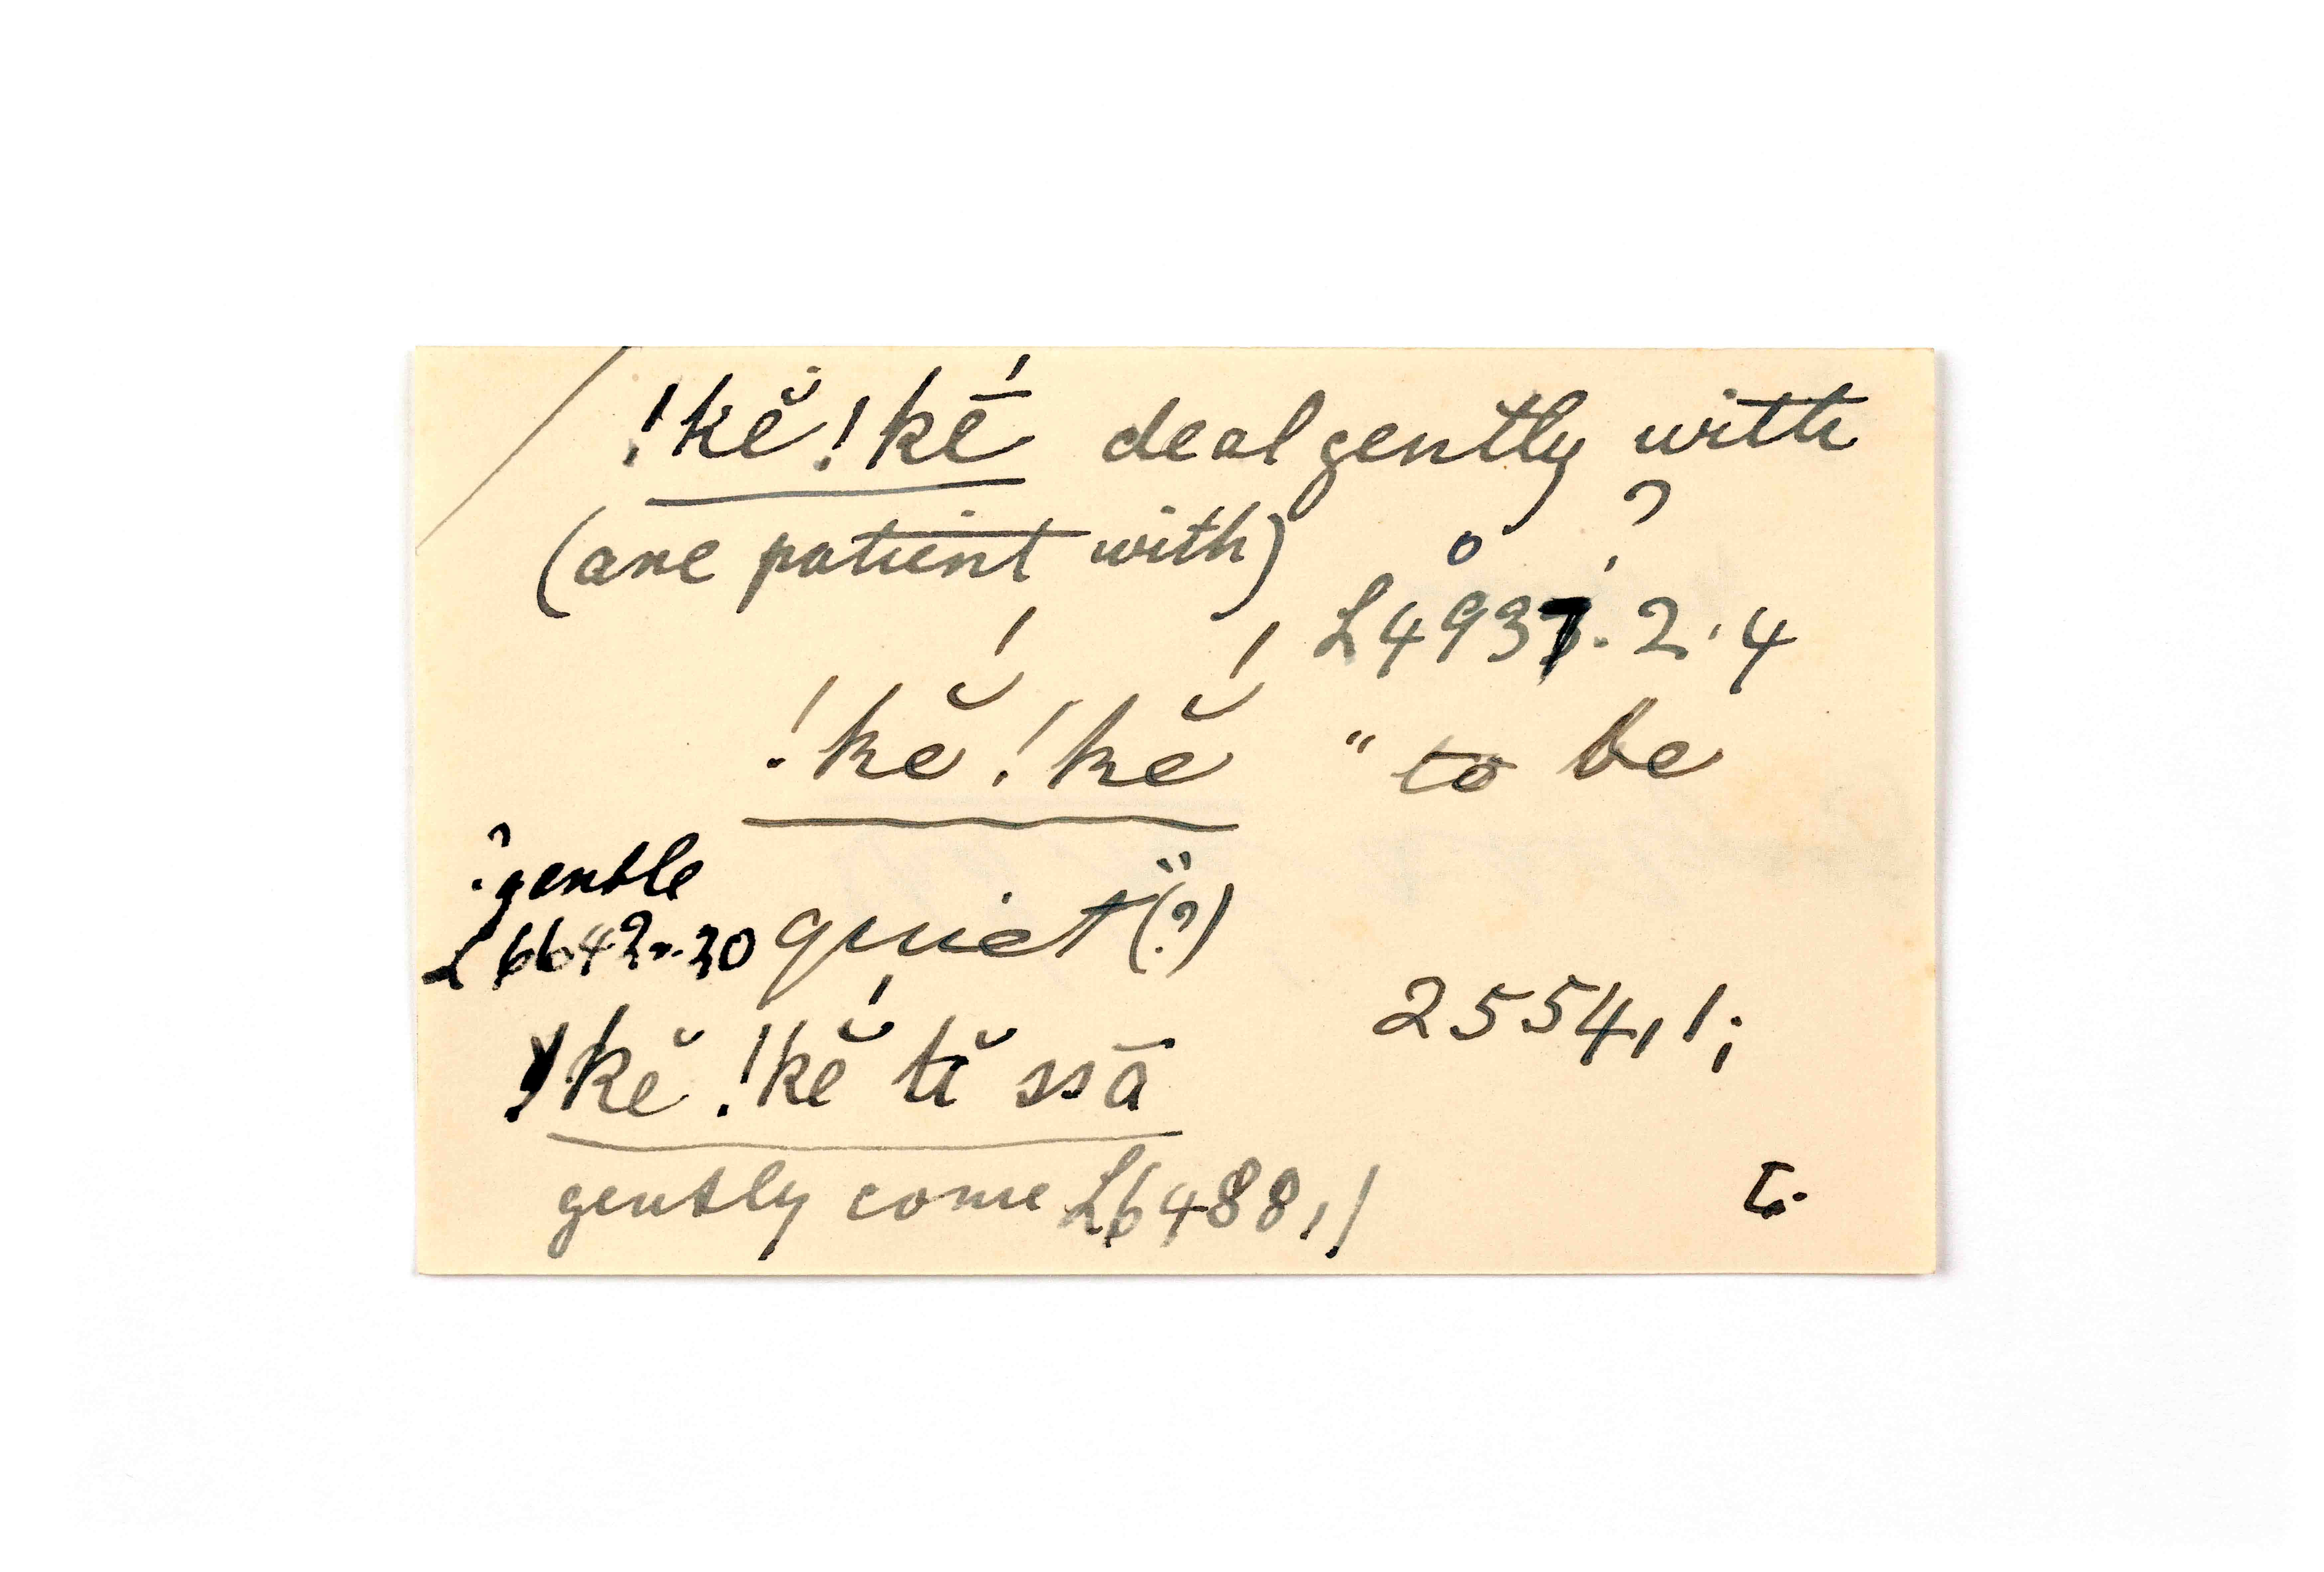 !kĕ!kḗ deal gently with
(are patient with) o ?
L4937.2.4
!kĕ́!kĕ́ "to be
?gentle
quiet"(?)
2554,1;
!kĕ !kĕ́ tĭ ssā
gently come L6488,1